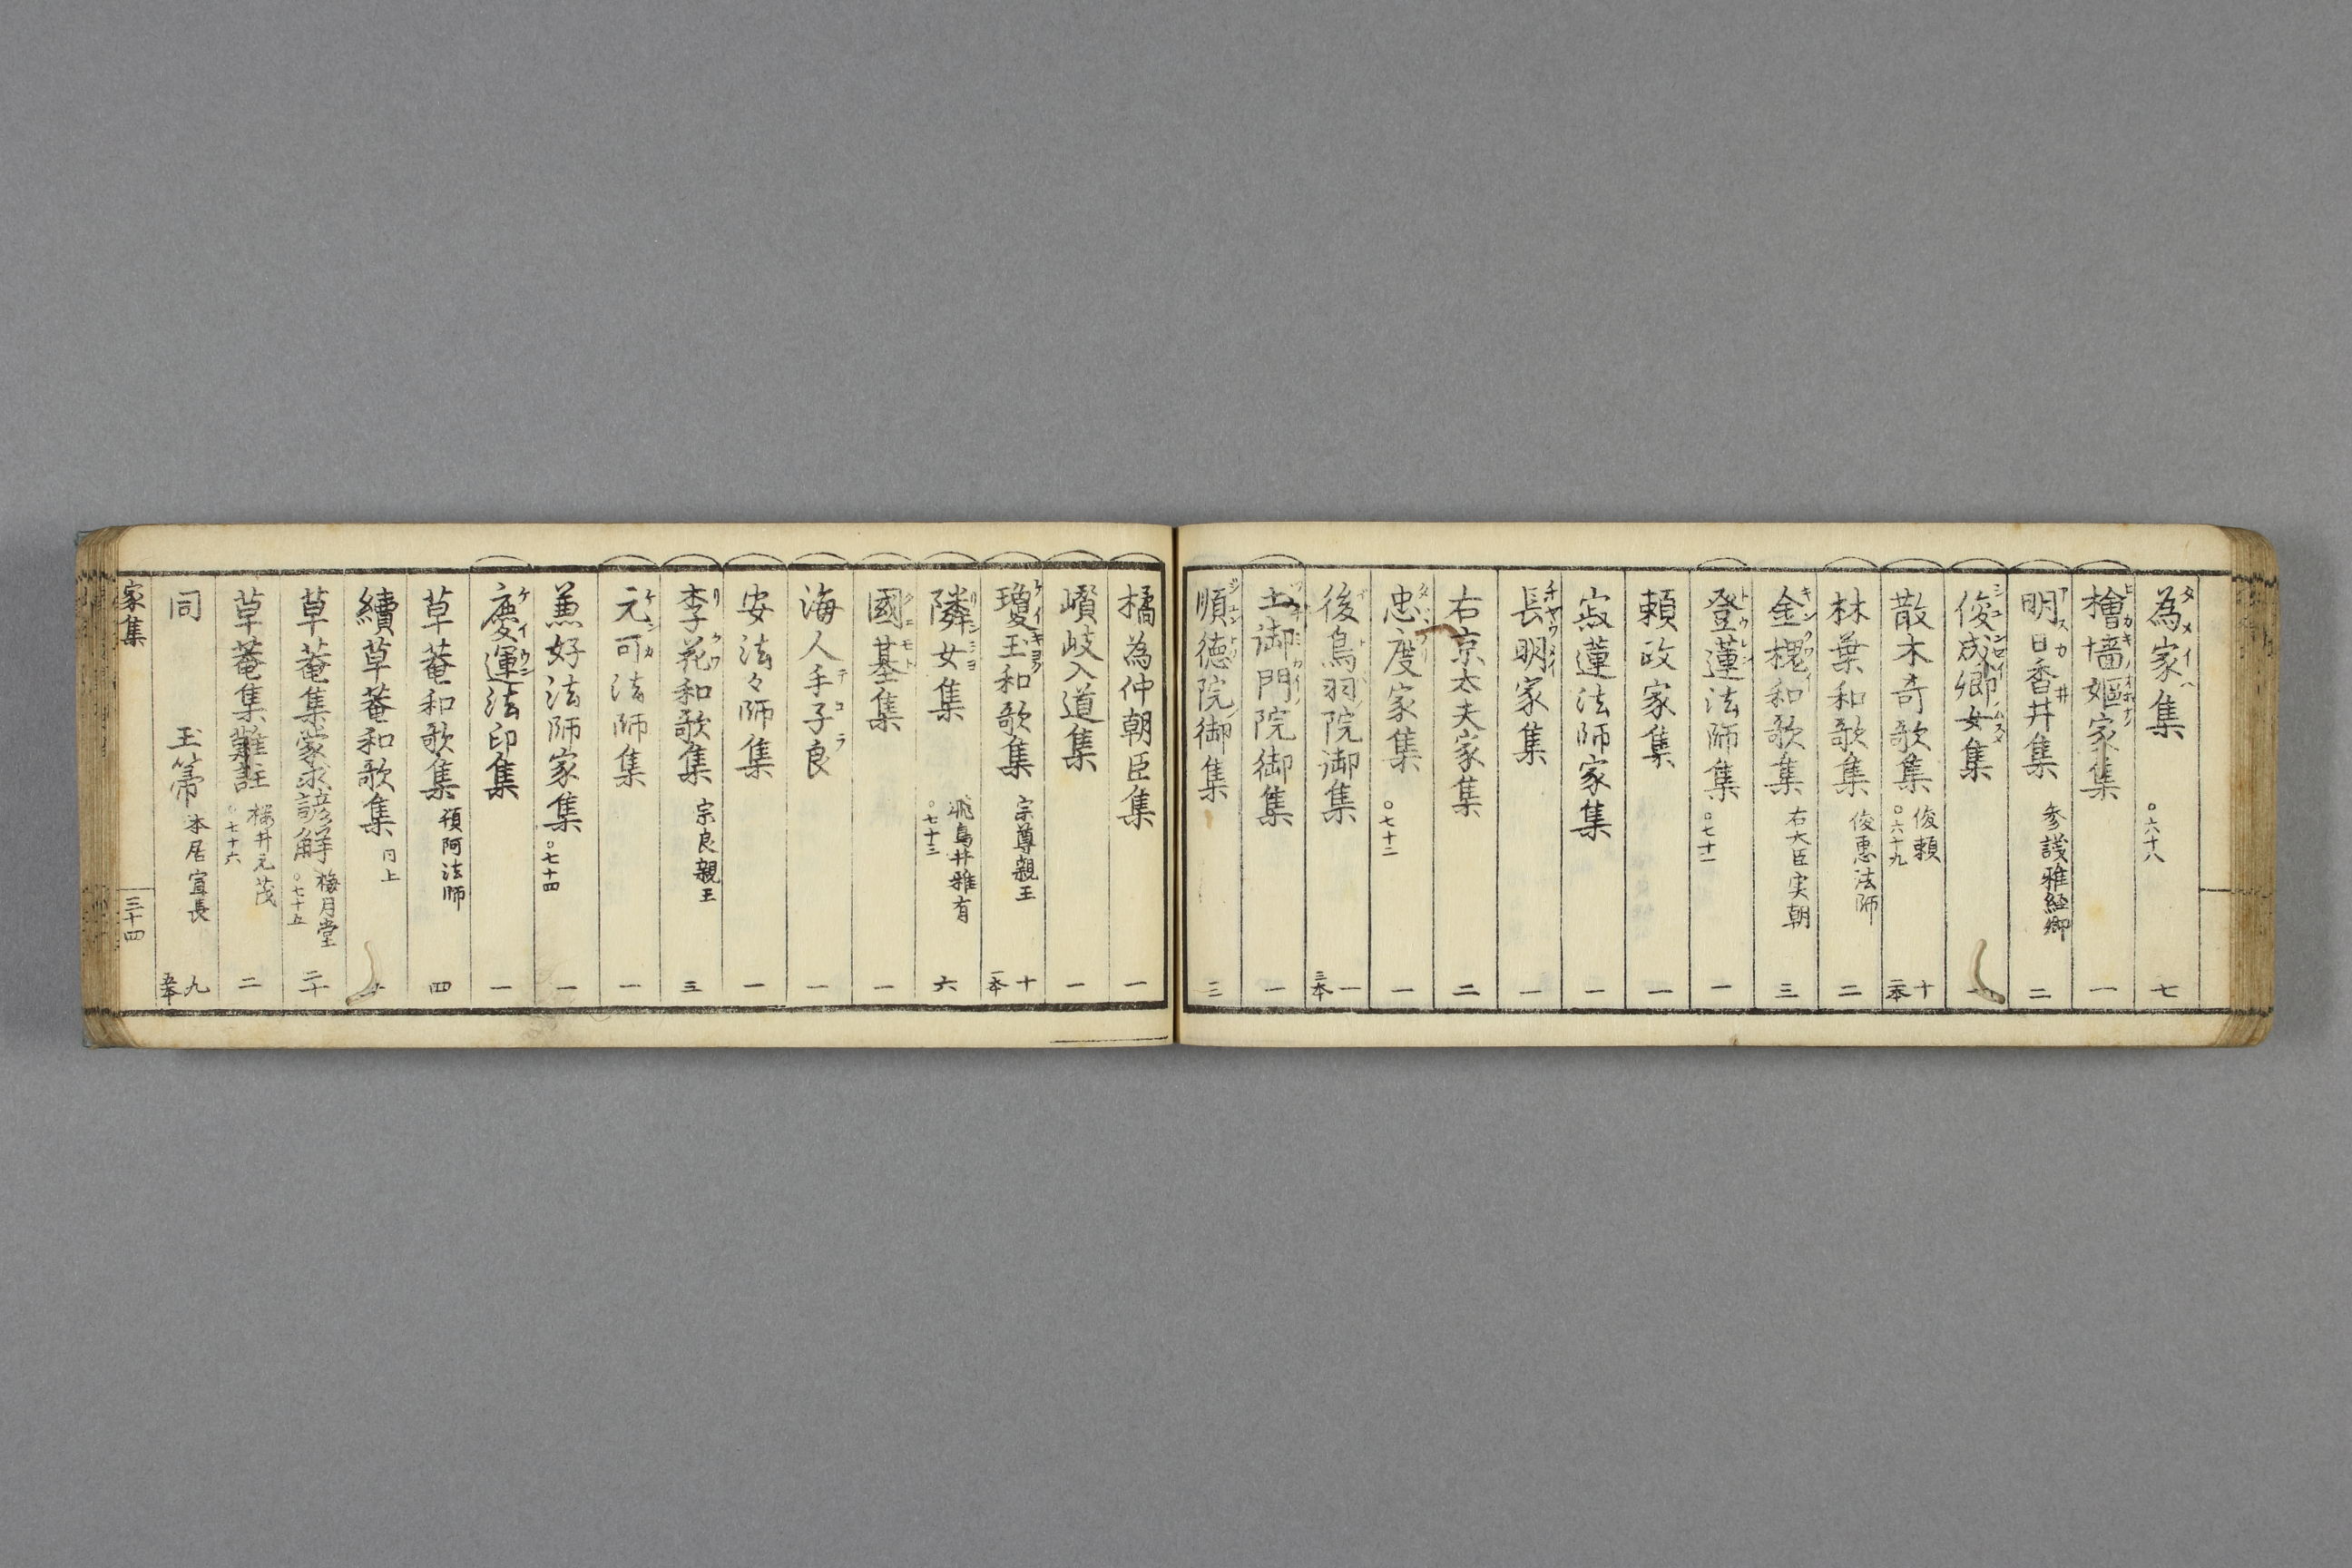 為家集 ○六十八 七
檜墻嫗家集 一
明日香井集 参議雅経卿 二
俊成卿女集
散木奇歌集 俊頼 ○六十九 十 二本
林葉和歌集 俊恵法師 二
金槐和歌集 右大臣実朝 三
登蓮法師集 ○七十一 一
頼政家集 一
寂蓮法師家集 一
長明家集 一
右京太夫家集 二
忠度家集 ○七十二 一
後鳥羽院御集 一 三本
土御門院御集 一
順徳院御集 二
橘為仲朝臣集 一
巑岐入道集 一
瓊玉和歌集 宗尊親王 十 二本
隣女集 飛鳥井雅有 ○七十三 六
國基集 一
海人手子良 一
安法々師集 一
李花和歌集 宗良親王 三
元可法師集 一
兼好法師家集 ○七十四 一
慶運法印集 一
草菴和歌集 頓阿法師 四
續草菴和歌集 同上
草菴集蒙求諺解 梅月堂 ○七十五 二十
草菴集難註 桜井元茂 ○七十六 二
同 玉箒 本居宣長 九 五本
家集 三十四